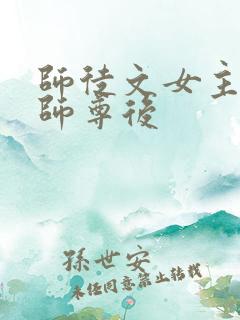 師徒文女主
師尊後
孫世安
未經同意禁止轉載